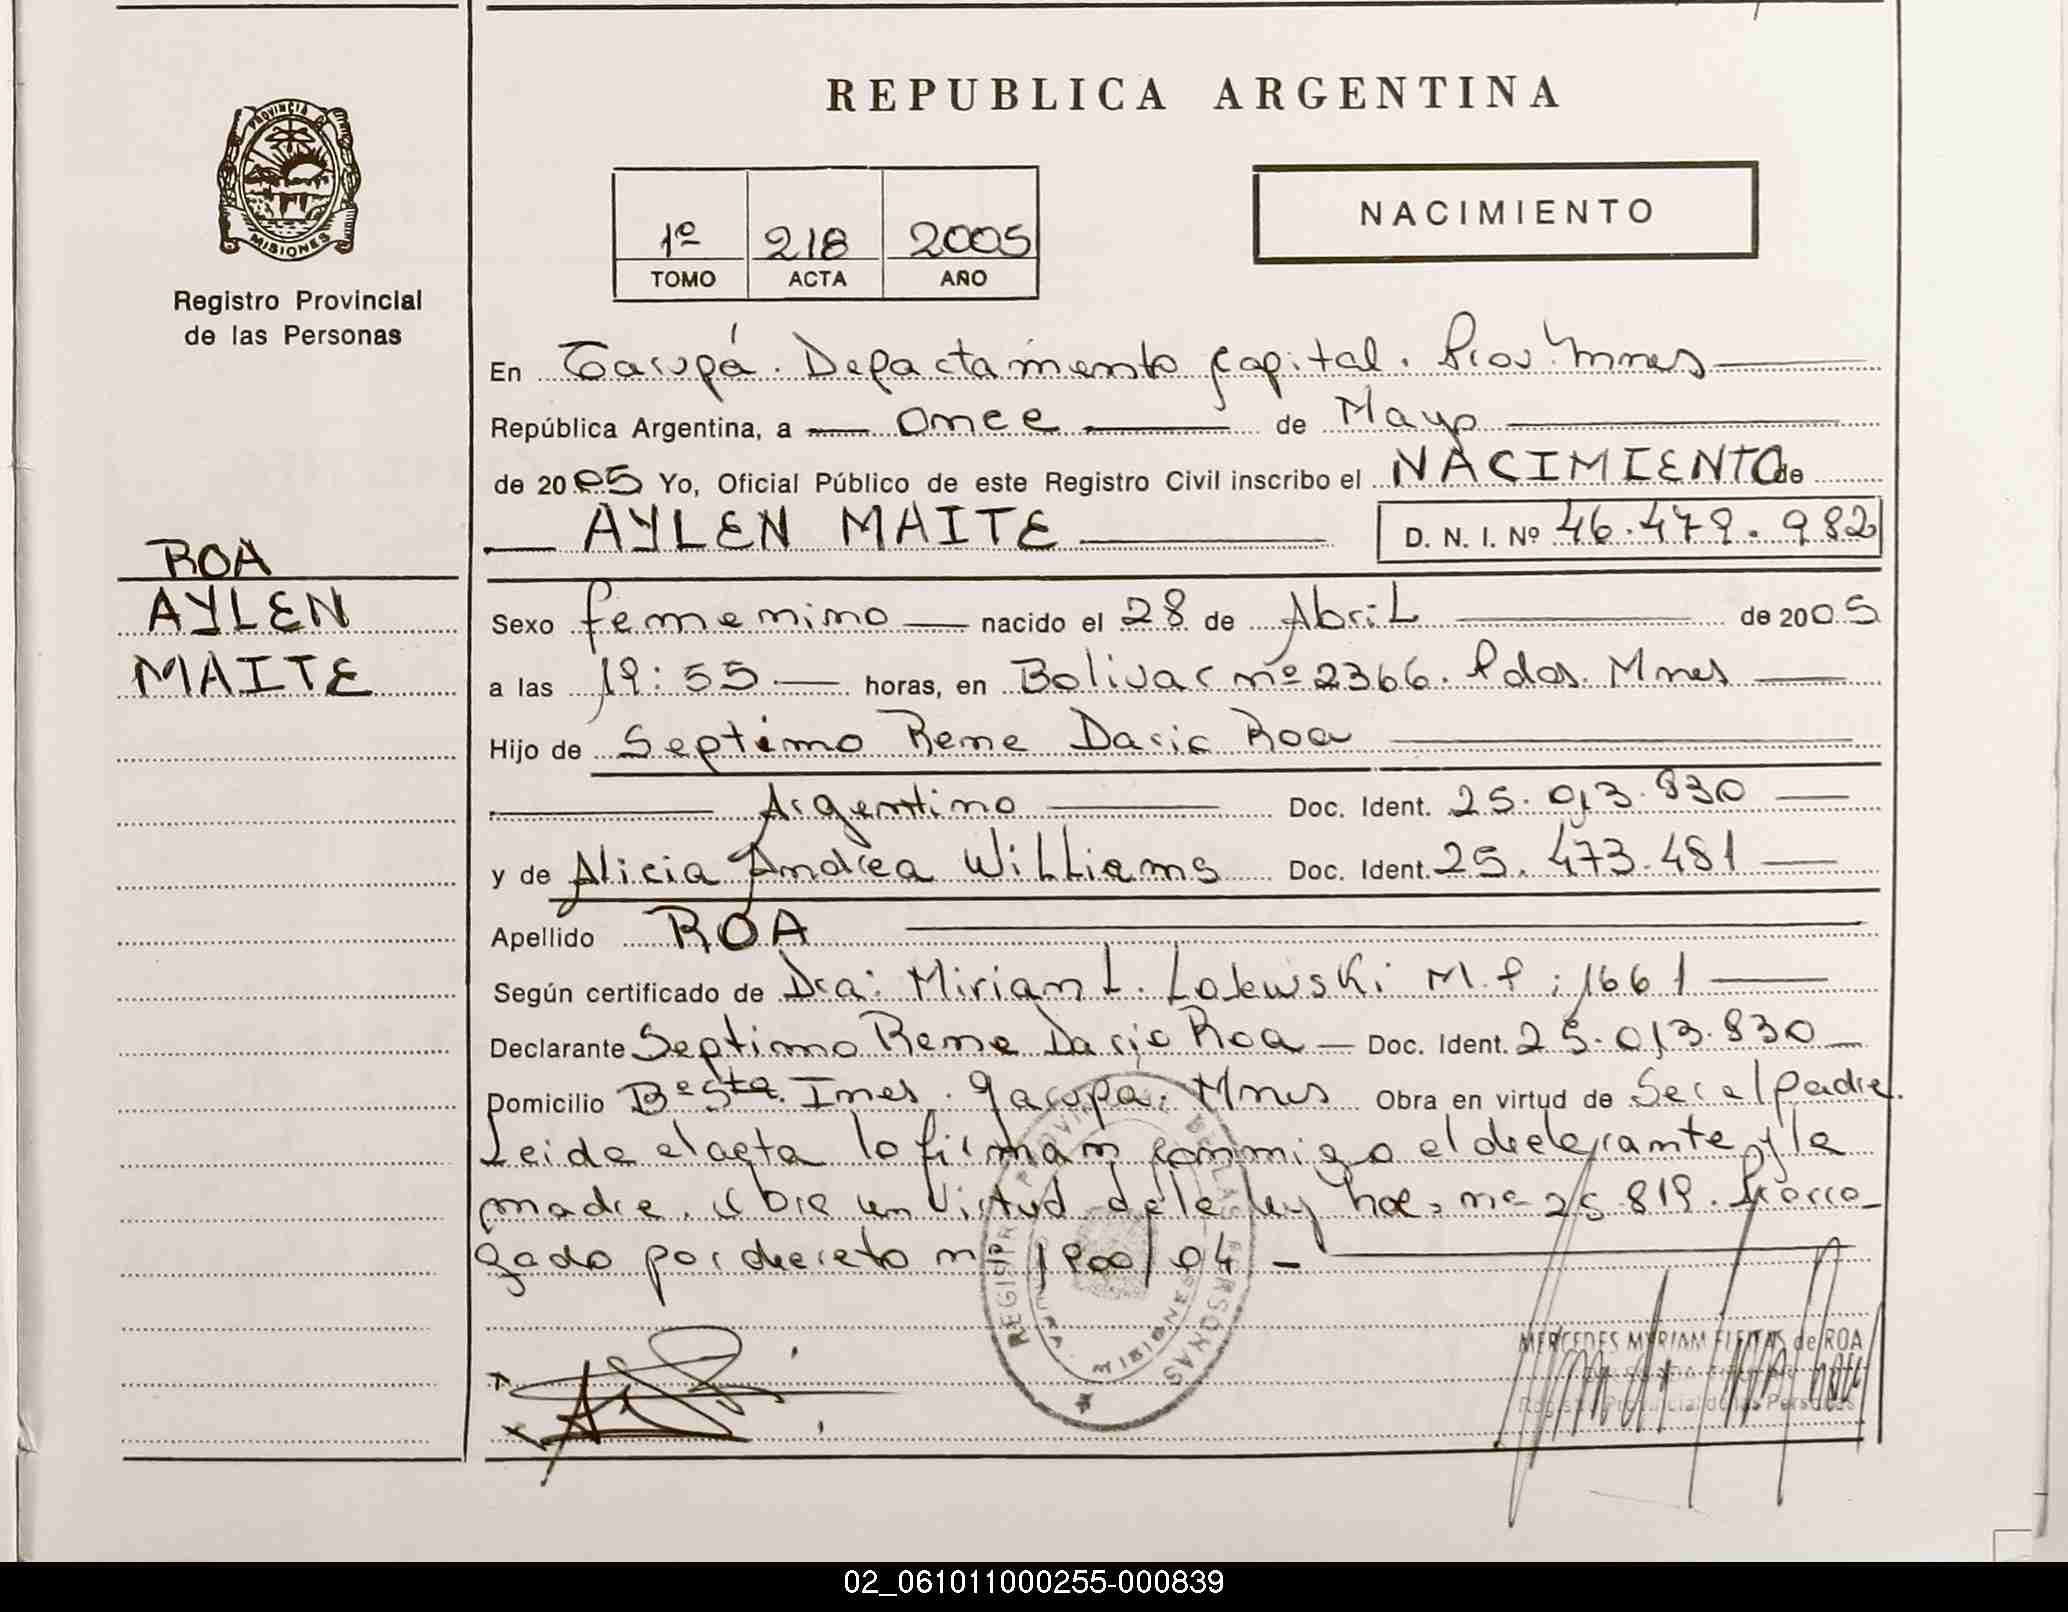 REPUBLICA ARGENTINA
PROVINCIA DE
MISIONES
Registro Provincial
de las Personas
NACIMIENTO
1º 218 2005
TOMO ACTA AÑO
En Garupá. Departamento Capital. Prov. Mnes
República Argentina, a once de Mayo
de 2005 Yo, Oficial Público de este Registro Civil inscribo el NACIMIENTO de
AYLEN MAITE D. N. I. Nº 46.479.982
ROA
AYLEN
MAITE
Sexo femenino nacido el 28 de Abril de 2005
a las 19:55 horas, en Bolivar nº 2366. Pdas. Mnes
Hijo de Septimo Rene Dario Roa
Argentino Doc. Ident. 25.013.830
y de Alicia Andrea Williams Doc. Ident. 25.473.481
Apellido ROA
Según certificado de Dra: Miriam L. M.P: 1661
Declarante Septimo Rene Dario Roa Doc. Ident. 25.013.830
Domicilio Bº Sta. Ines. Garupa. Mnes Obra en virtud de Ser el padre.
Leida el acta la firman conmigo el declarante y la
madre. Obra en Virtud de la ley nº 25.819. Prorro-
gado por decreto nº 1900/04.-
REGISTRO PROVINCIAL DE LAS PERSONAS
MISIONES
MERCEDES MYRIAM FLEITAS de ROA
Registro Provincial de las Personas
02_061011000255-000839